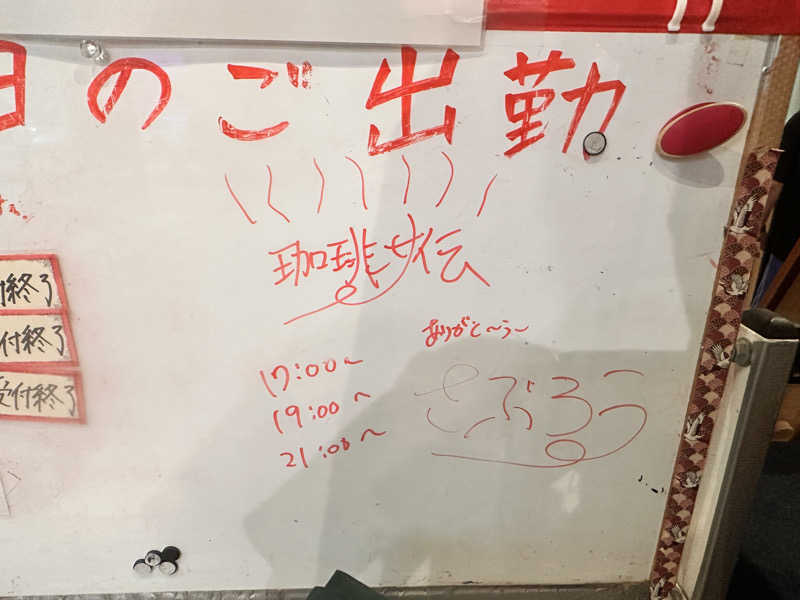 日のご出勤
珈琲サ伝
ありがと〜う〜
17:00〜
19:00〜
21:00〜
さぶろう
付終了
付終了
受付終了